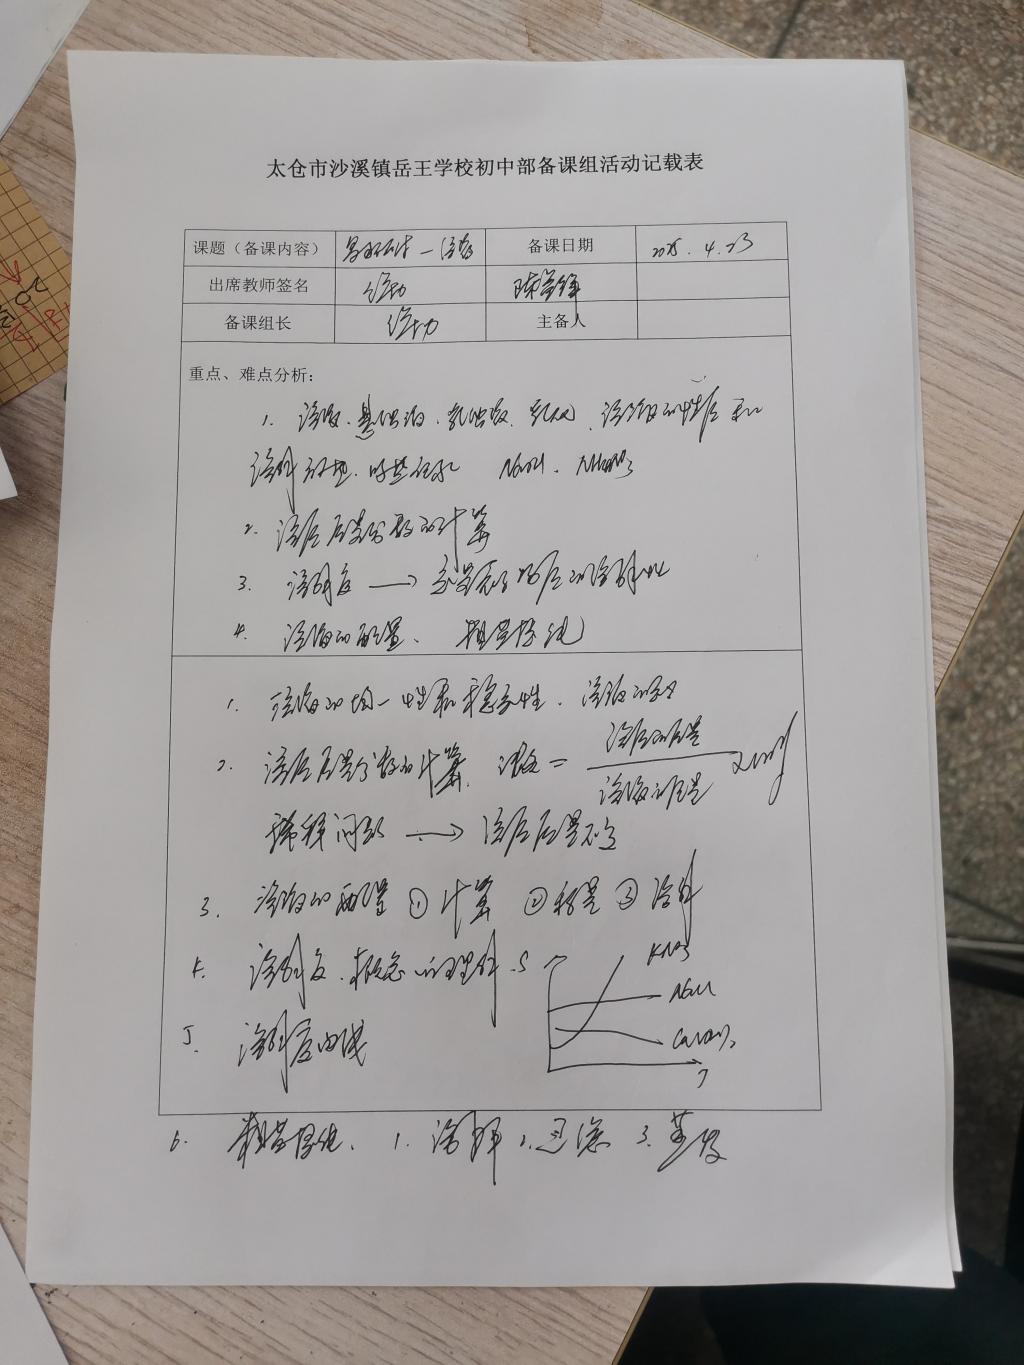 太仓市沙溪镇岳王学校初中部备课组活动记载表
课题（备课内容） 备课日期 2025.4.23
出席教师签名
备课组长 主备人
重点、难点分析：
1. 溶液、悬浊液、乳浊液、乳化、溶液的性质和
溶解 NaOH、NH4NO3
2. 溶质质量分数的计算
3. 溶解度 → 定量表示物质的溶解性
4. 溶液的配置、粗盐提纯
1. 溶液的均一性和稳定性、溶液的
2. 溶质质量分数的计算 = 溶质的质量 / 溶液的质量 ×100%
稀释问题 → 溶质质量不变
3. 溶液的配置 ① 计算 ② 称量 ③ 溶解
4. 溶解度、概念的理解 S KNO3
NaCl
Ca(OH)2
5. 溶解度曲线
6. 粗盐提纯、1. 溶解 2. 过滤 3. 蒸发